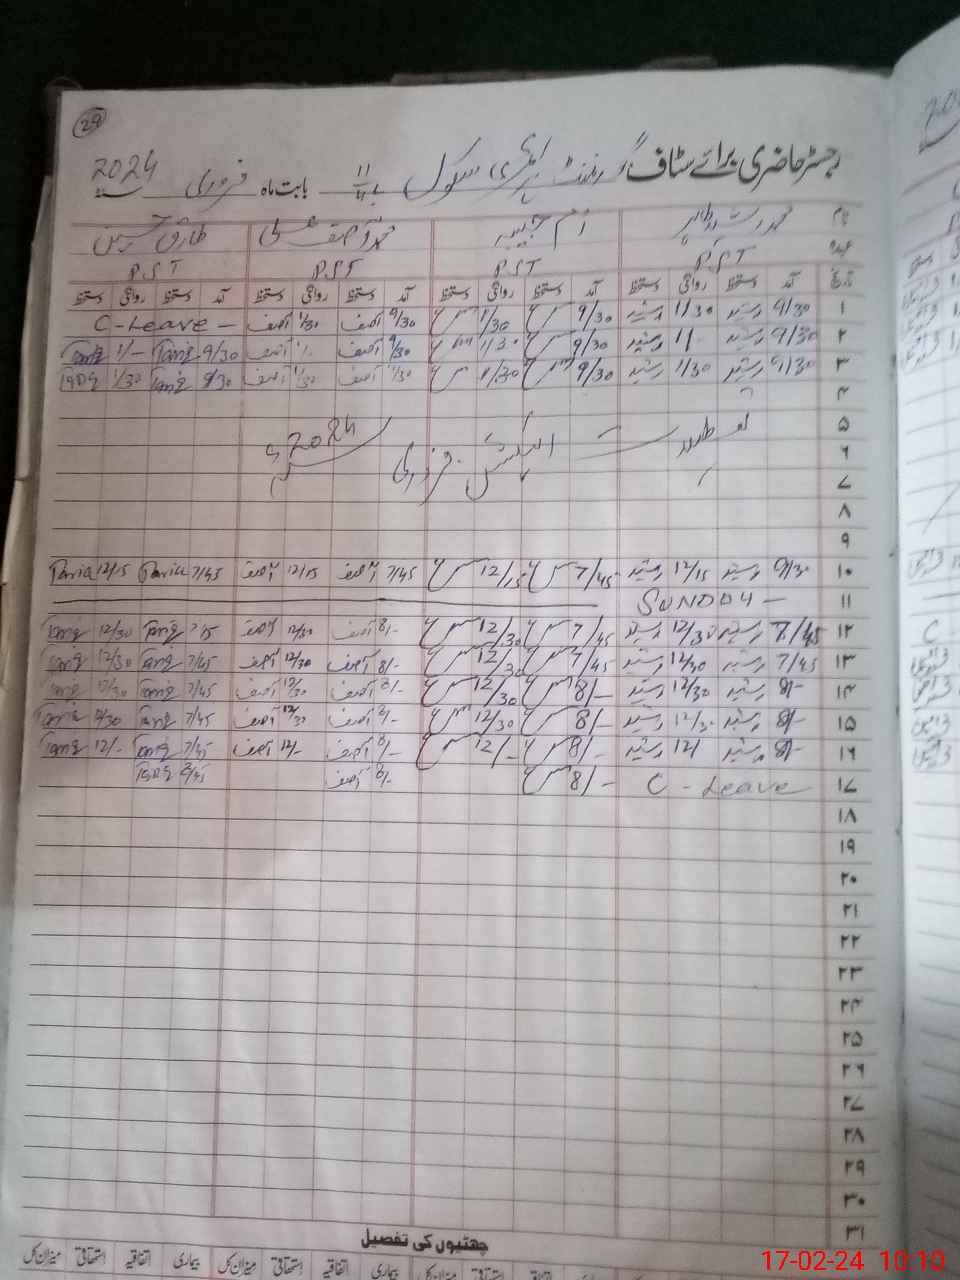 29
رجسٹر حاضری برائے سٹاف گورنمنٹ پرائمری سکول 11/4 بابت ماہ فروری سنہ 2024
نام محمد رشید طاہر ام حبیبہ محمد آصف علی طارق حسین
عہدہ P.ST P.ST P.ST P.ST
تاریخ آمد دستخط روانگی دستخط آمد دستخط روانگی دستخط آمد دستخط روانگی دستخط آمد دستخط روانگی دستخط
۱ 9/30 رشید 1/30 رشید 9/30 1/30 9/30 آصف 1/30 آصف C-Leave -
۲ 9/30 رشید 1/ رشید 9/30 1/30 9/30 آصف 1/ آصف 9/30 Tariq 1/- Tariq
۳ 9/30 رشید 1/30 رشید 9/30 1/30 آصف 1/30 آصف 9/30 Tariq 1/30 Tariq
۴
۵ تعطیلات الیکشن فروری 2024ء
۶
۷
۸
۹
۱۰ 9/30 رشید 12/15 رشید 7/45 12/15 7/45 آصف 12/15 آصف 7/45 Tariq 12/15 Tariq
۱۱ SUNDAY -
۱۲ 7/45 رشید 12/30 رشید 7/45 12/30 8/- آصف 12/30 آصف Tariq 12/30 Tariq
۱۳ 7/45 رشید 12/30 رشید 7/45 12/30 8/- آصف 12/30 آصف 7/45 Tariq 12/30 Tariq
۱۴ 8/- رشید 12/30 رشید 8/- 12/30 8/- آصف 12/30 آصف 7/45 Tariq 12/30 Tariq
۱۵ 8/- رشید 12/30 رشید 8/- 12/30 8/- آصف 12/30 آصف 7/45 Tariq 12/30 Tariq
۱۶ 8/- رشید 12/ رشید 8/- 12/- 8/- آصف 12/- آصف 7/45 Tariq 12/- Tariq
۱۷ C - Leave 8/- 8/- آصف Tariq
۱۸
۱۹
۲۰
۲۱
۲۲
۲۳
۲۴
۲۵
۲۶
۲۷
۲۸
۲۹
۳۰
۳۱
چھٹیوں کی تفصیل
بیماری اتفاقیہ استحقاقی میزان کل بیماری اتفاقیہ استحقاقی میزان کل
17-02-24 10:10